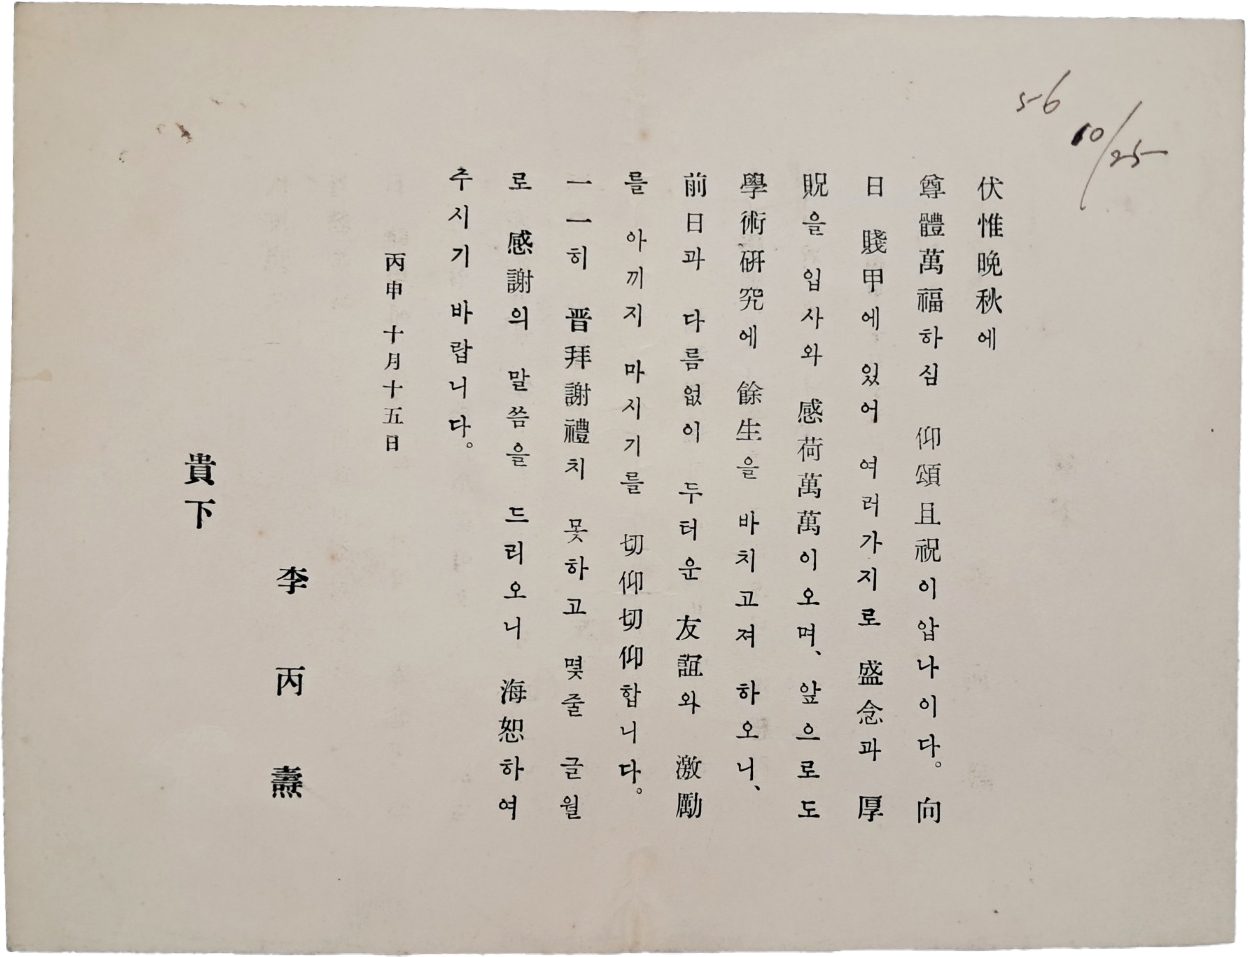 56 10/25
伏惟晩秋에
尊體萬福하심 仰頌且祝이압나이다。向
日 賤甲에 있어 여러가지로 盛念과 厚
貺을 입사와 感荷萬萬이오며、앞으로도
學術硏究에 餘生을 바치고져 하오니、
前日과 다름없이 두터운 友誼와 激勵
를 아끼지 마시기를 切仰切仰합니다。
一一히 晋拜謝禮치 못하고 몇줄 글월
로 感謝의 말씀을 드리오니 海恕하여
주시기 바랍니다。
丙申 十月十五日
李丙燾
貴下